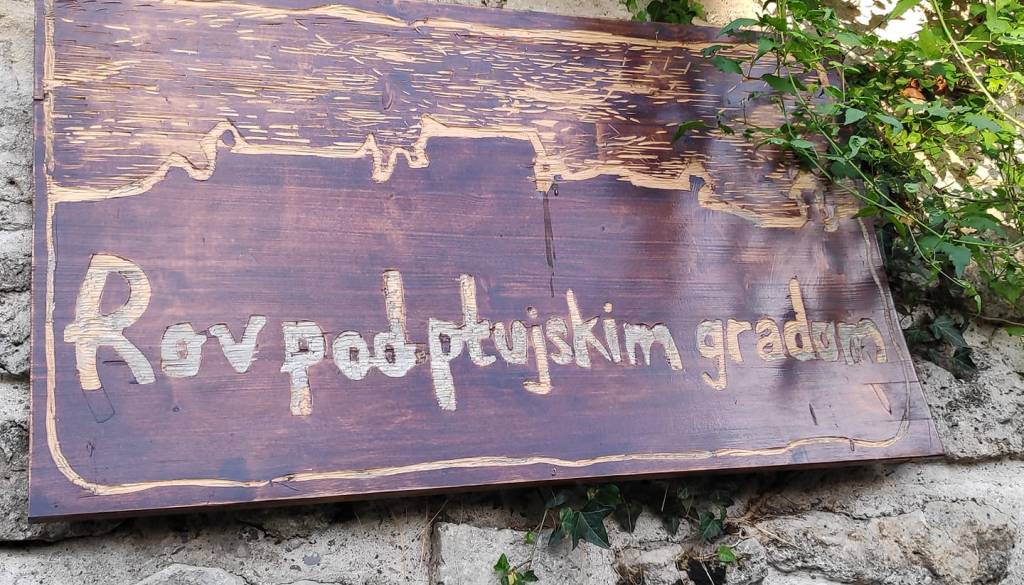 Rov pod ptujskim gradom